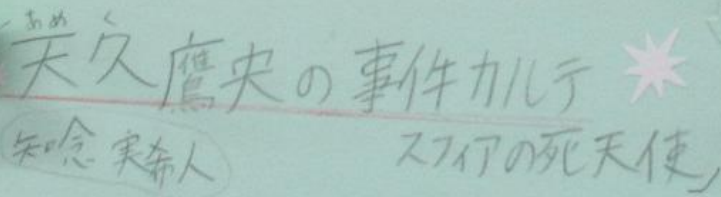 あめく
天久鷹央の事件カルテ
知念実希人 スフィアの死天使」